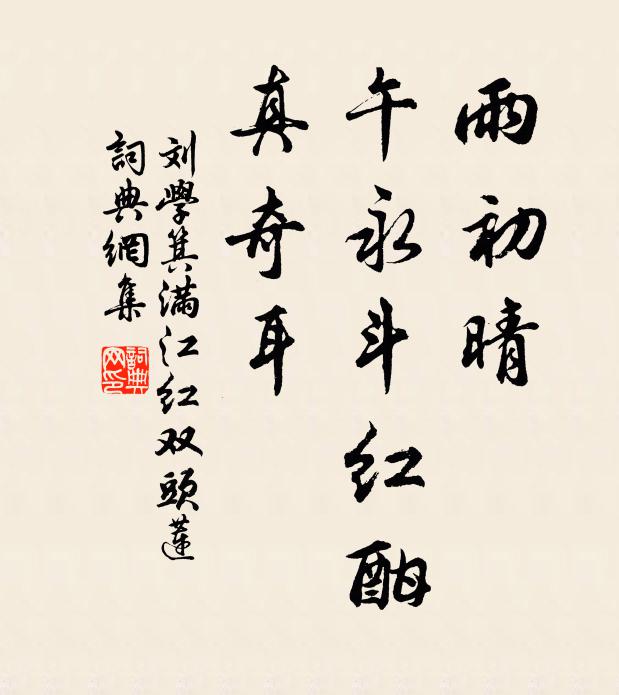 雨初晴
午永斗红酣
真奇耳
刘學箕满江红双頭蓮
詞典網集
詞典网印